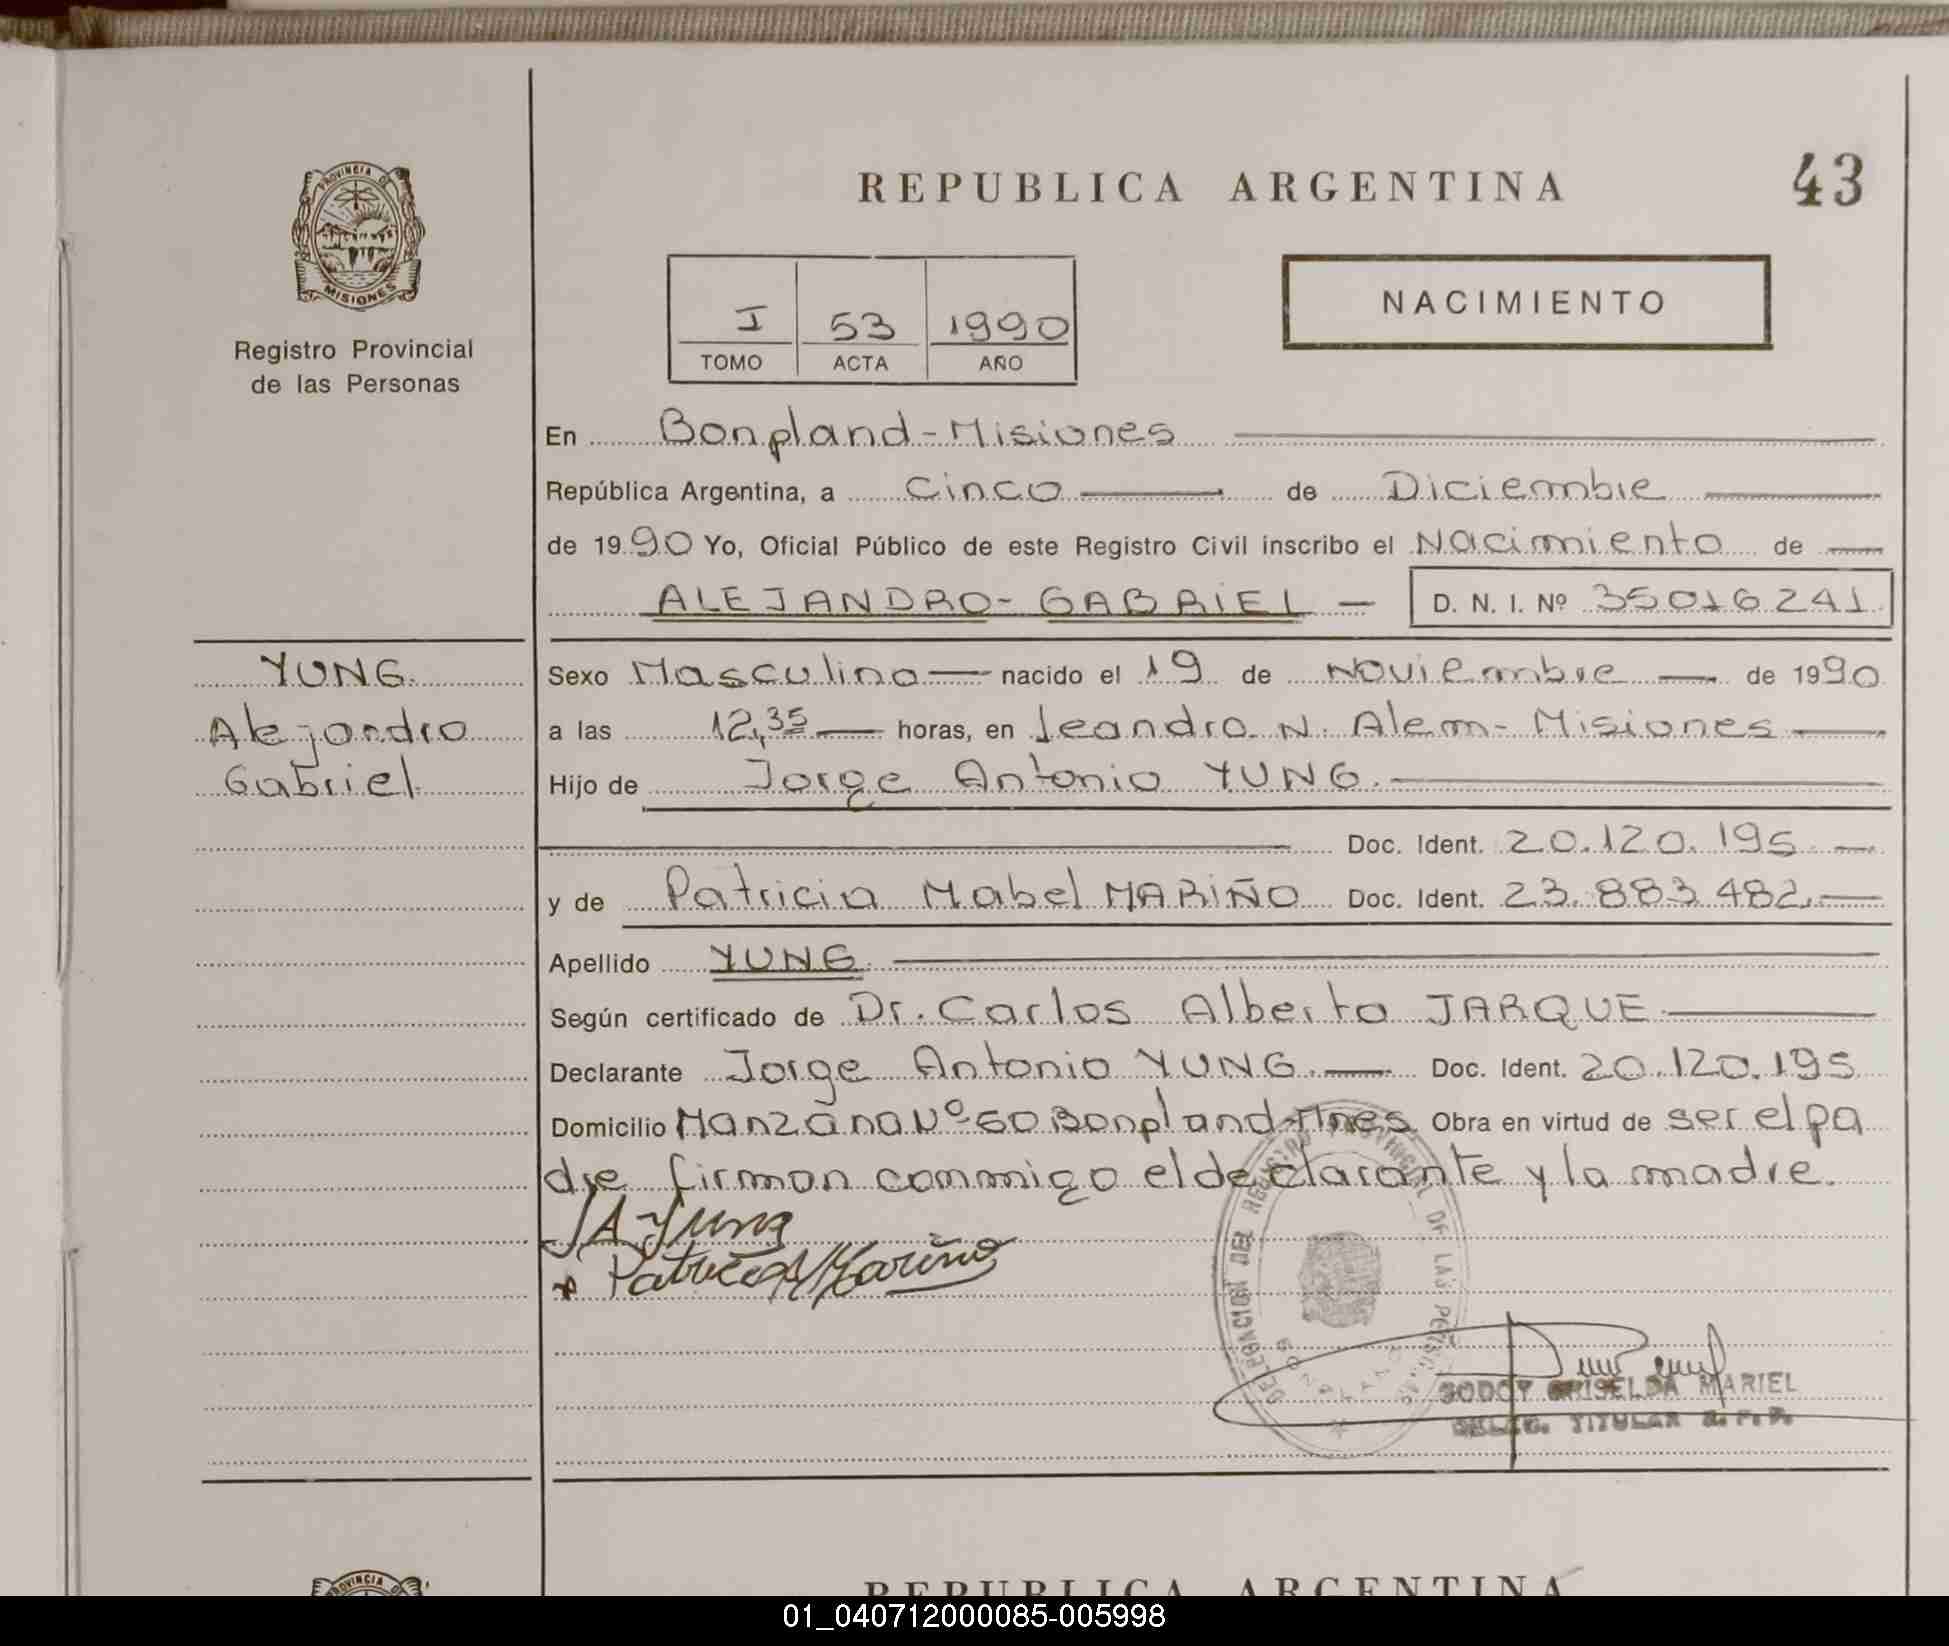 REPUBLICA ARGENTINA
43
PROVINCIA DE
MISIONES
Registro Provincial
de las Personas
I 53 1990
TOMO ACTA AÑO
NACIMIENTO
En Bonpland-Misiones
República Argentina, a Cinco de Diciembre
de 1990 Yo, Oficial Público de este Registro Civil inscribo el Nacimiento de
ALEJANDRO-GABRIEL D. N. I. Nº 35016241
YUNG
Alejandro
Gabriel
Sexo Masculino nacido el 19 de Noviembre de 1990
a las 12,35 horas, en Leandro N. Alem-Misiones
Hijo de Jorge Antonio YUNG.
Doc. Ident. 20.120.195
y de Patricia Mabel MARIÑO Doc. Ident. 23.883.482.
Apellido YUNG
Según certificado de Dr. Carlos Alberto JARQUE
Declarante Jorge Antonio YUNG. Doc. Ident. 20.120.195
Domicilio Manzana Nº 60 Bonpland-Mnes Obra en virtud de ser el pa
dre firman conmigo el declarante y la madre.
JAYung
Patricia M Mariño
DELEGACION DEL REGISTRO PROVINCIAL DE LAS PERSONAS
BONPLAND
GODOY GRISELDA MARIEL
DELEG. TITULAR R. P. P.
PROVINCIA
REPUBLICA ARGENTINA
01_040712000085-005998